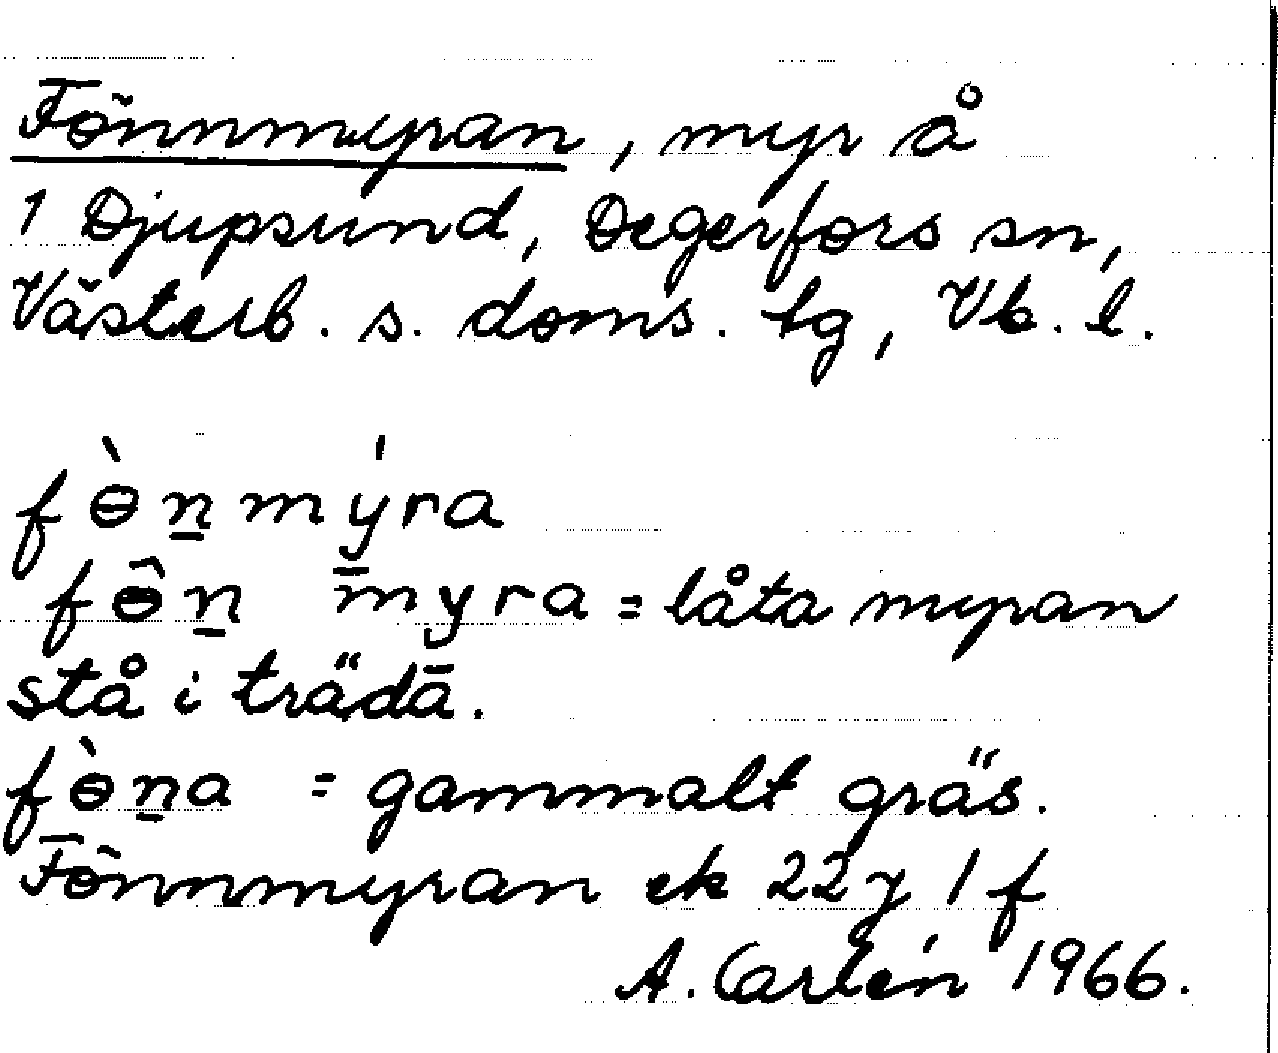 Fönnmyran, myr å
1 Djupsund, Degerfors sn,
Västerb. s. doms. tg, Vb. l.
fɵ̀n̲mýra
fɵ̂n̲ m̄yra = låta myran
stå i träda.
fɵ̀n̲a = gammalt gräs.
Fönnmyran ek 22 y 1 f
A. Carlén 1966.